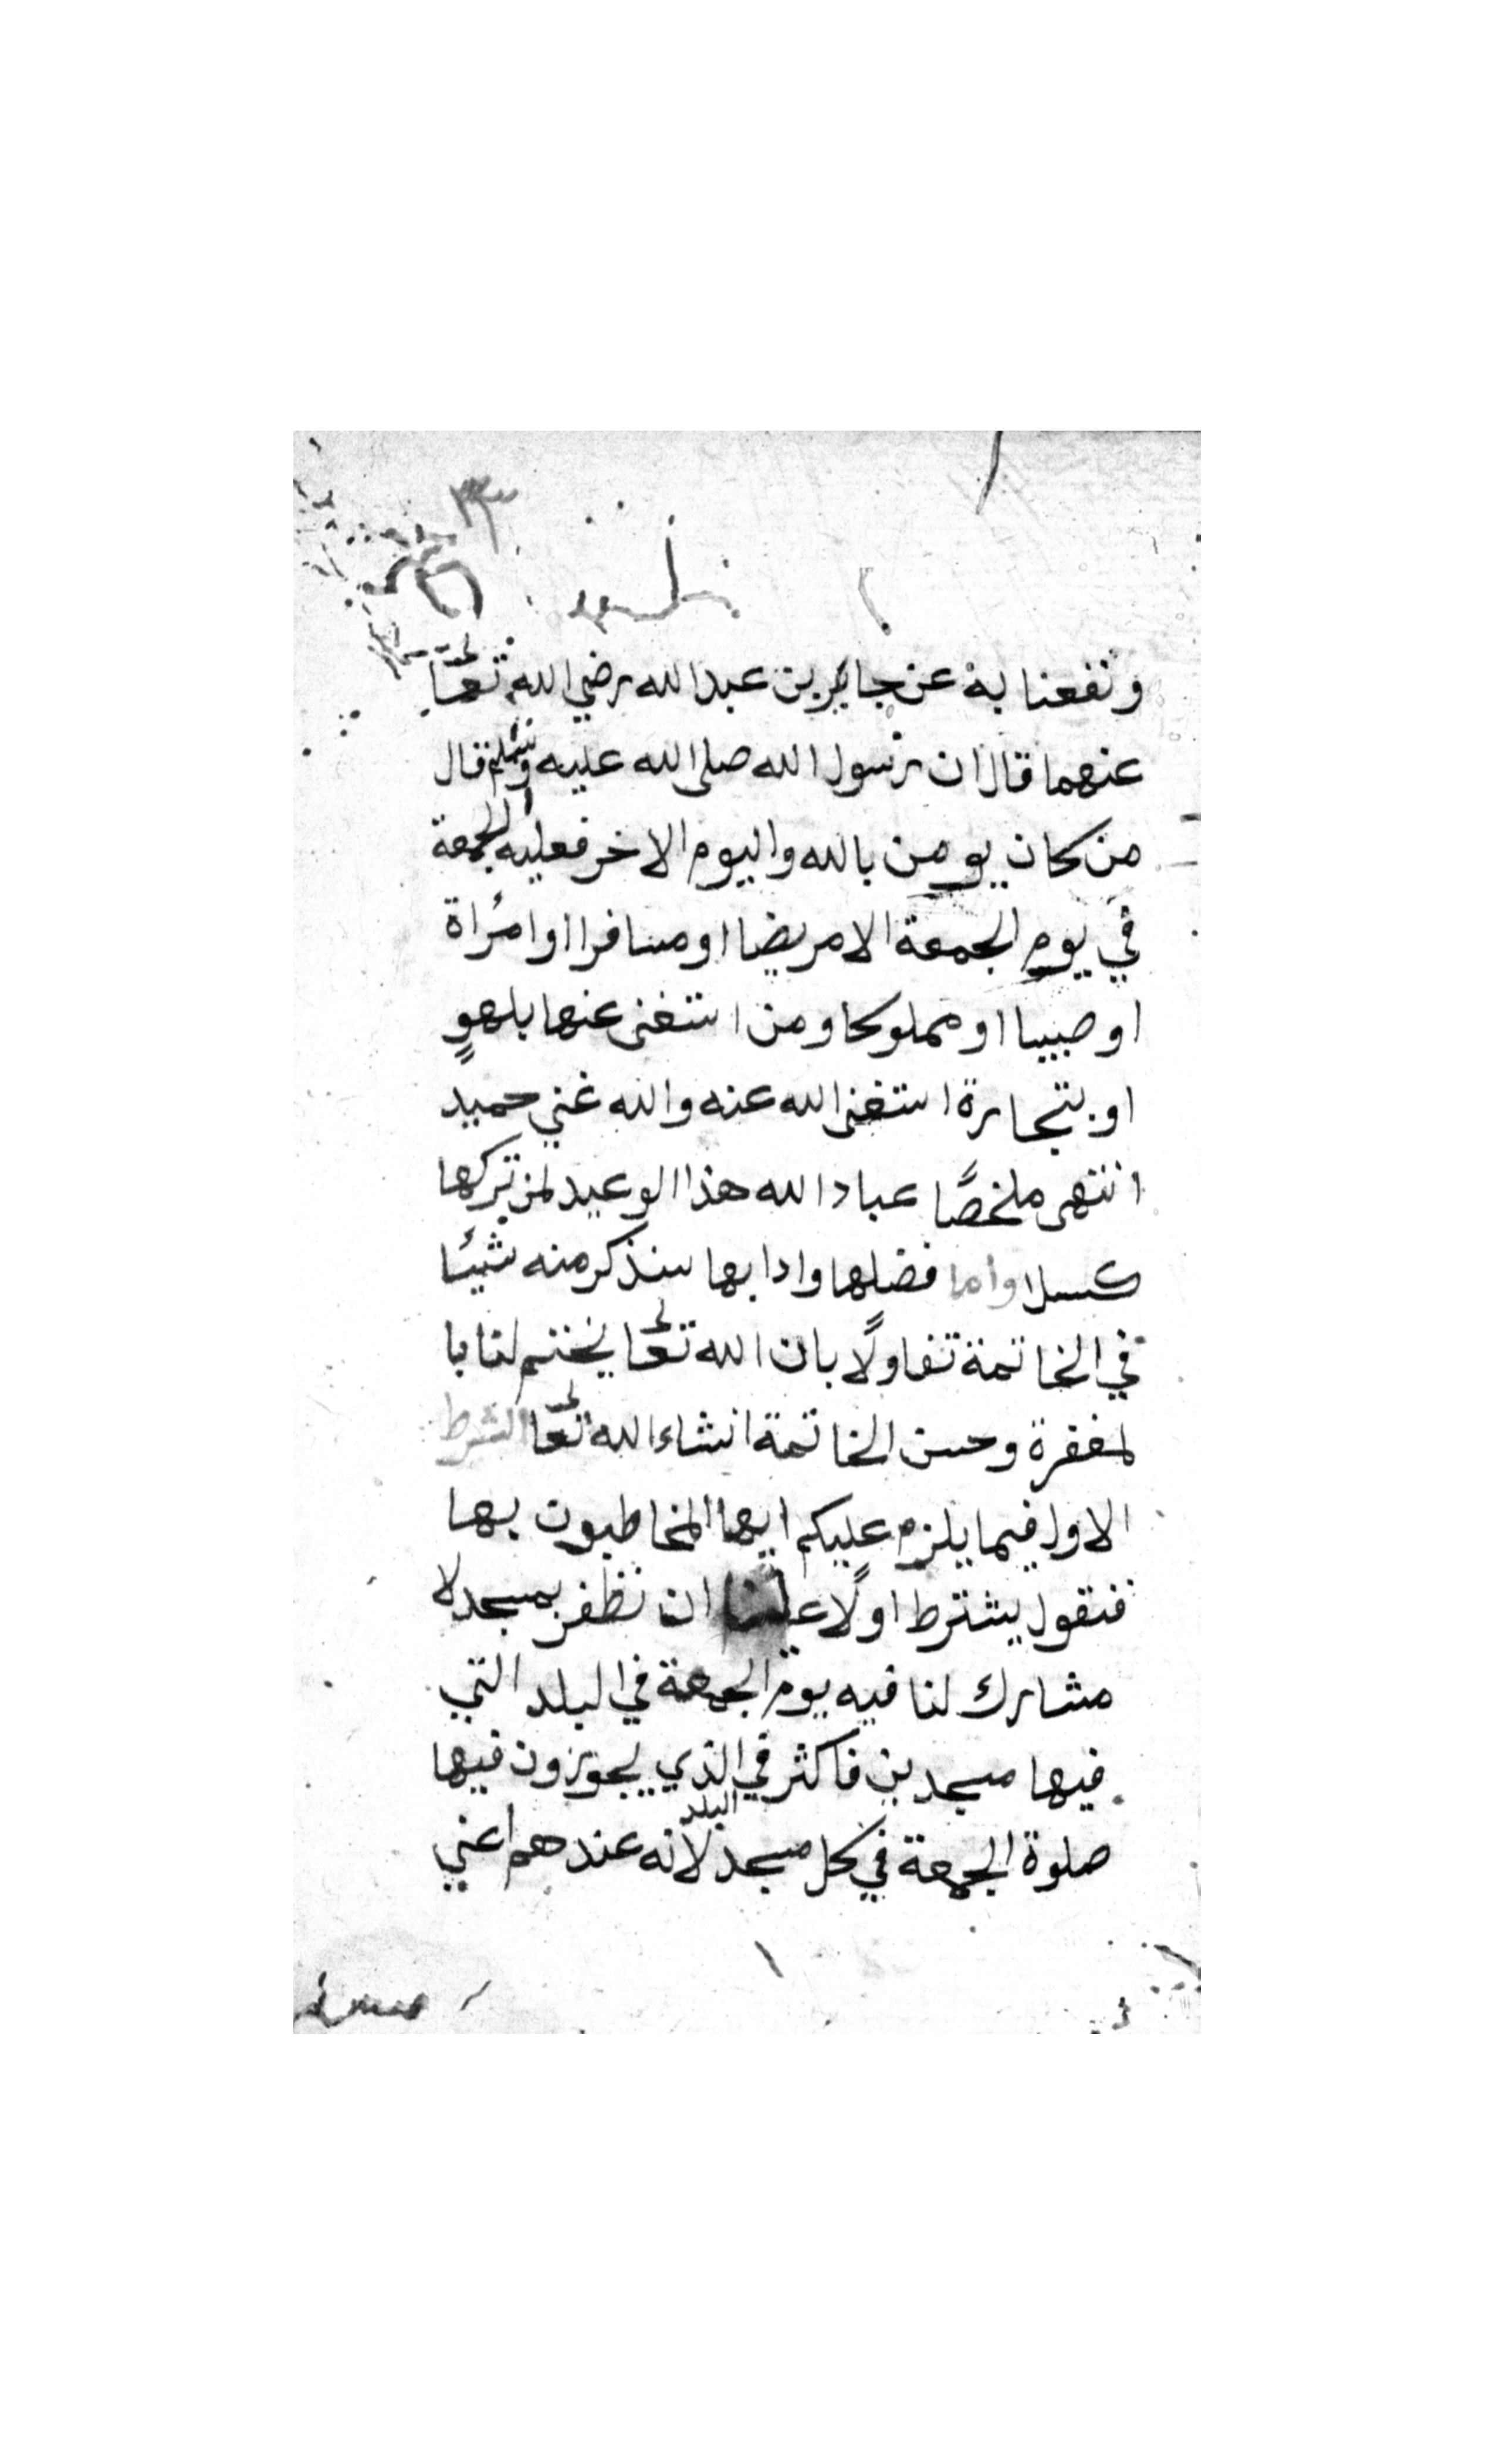 ونفعنا به عن جابر بن عبد الله رضي الله تعالى
عنهما قال ان رسول الله صلى الله عليه وسلم قال
من كان يومن بالله واليوم الاخر فعليه الجمعة
في يوم الجمعة الا مريضا او مسافرا او امرأة
او صبيا او مملوكا ومن استغنى عنها بلهوٍ
او بتجارة استغنى الله عنه والله غني حميد
انتهى ملخصًا عباد الله هذا الوعيد لمن تركها
كسلا واما فضلها وادابها سنذكر منه شيئا
في الخاتمة تفاولًا بان الله تعالى يختم لنا با
لمغفرة وحسن الخاتمة انشاء الله تعالى الشرط
الاول فيما يلزم عليكم ايها المخاطبون بها
فنقول يشترط اولًا علينا ان نظفر بمسجد لا
مشارك لنا فيه يوم الجمعة في البلد التي
فيها مسجدين فاكثر في الذي يجوزون فيها
صلوة الجمعة في كل مسجد البلد لانه عندهم اعني